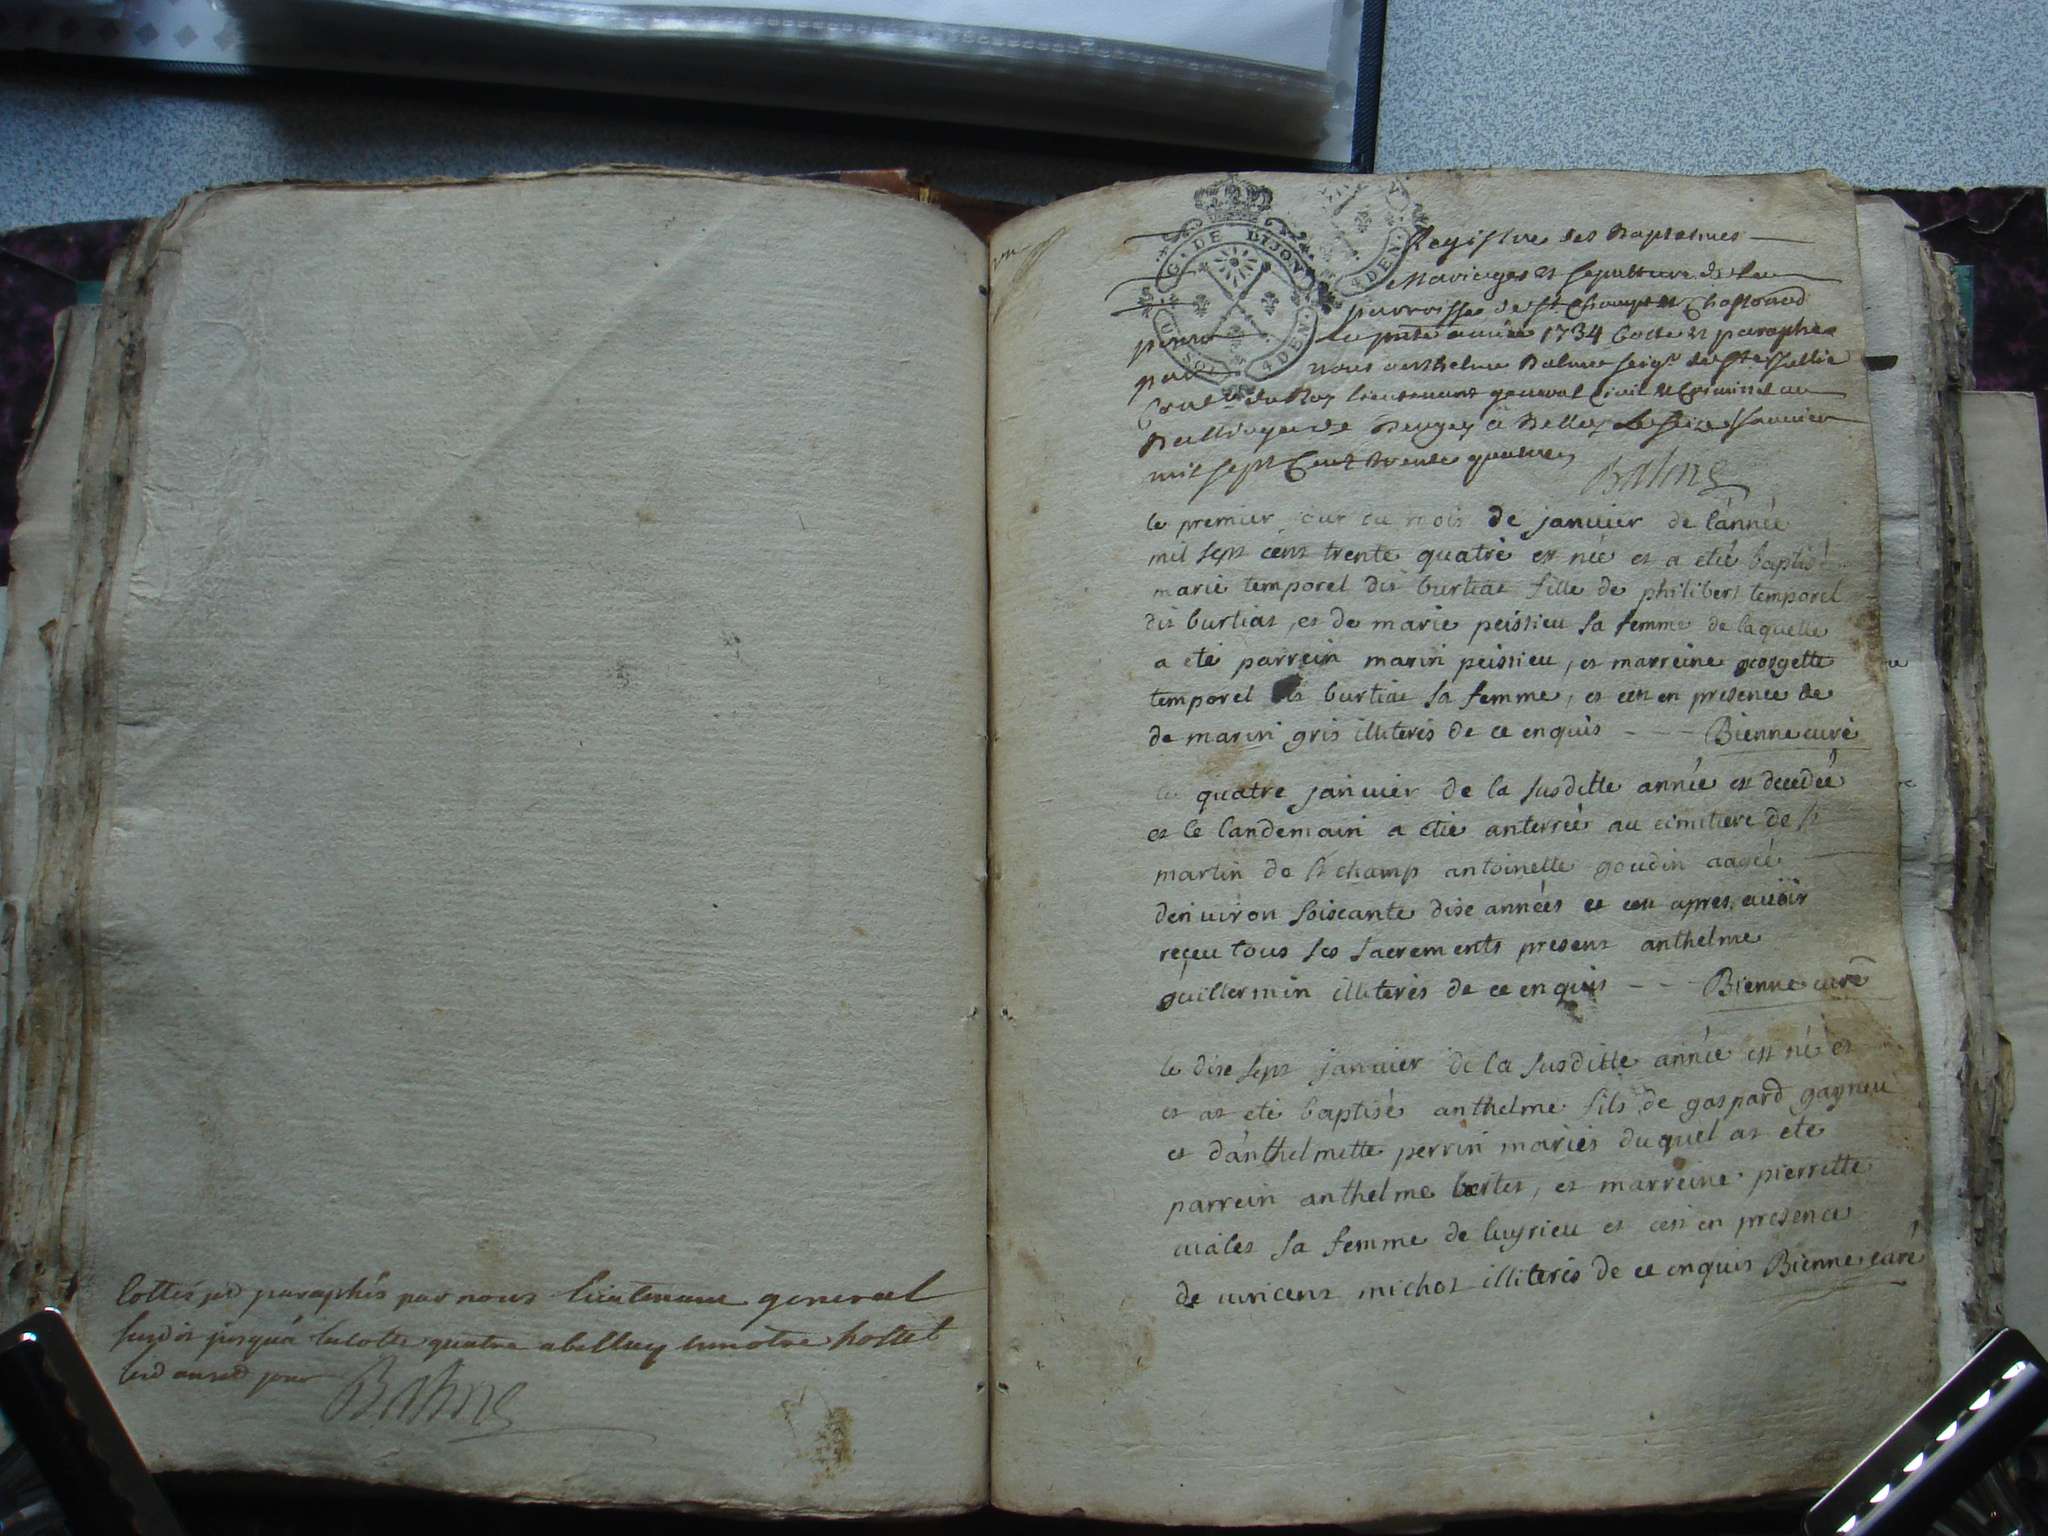 Cottés et paraphés par nous lieutenant general
susdit jusqu'a la cotte quatre a belley en notre hostel
lesd an et jour
Balme
G. DE DIJON
U. SOL
4 DEN.
4 DEN.
Registre des Baptesmes
Mariages et sepulture de la
parroisse de st Champt et Chastonod
pour la pnte année 1734 Cotté et paraphéa
par nous anthelme Balme seigr de Ste Jullie
Consr du Roy lieutenant general Civil et Criminel au
Balliage de Beugey a Belley le seize Janvier
mil sept Cent trente quatre
Balme
le premier jour du mois de janvier de l'année
mil sept cent trente quatre est née et a eté baptisé
marie temporel dit burtiat fille de philibert temporel
dit burtiat, et de marie peissieu sa femme de laquelle
a eté parrein marin peissieu, et marreine georgette
temporel dit burtiat sa femme, et cest en presence de
de marin gris illiteres de ce enquis - - - Bienne curé
le quatre janvier de la susditte année est decedée
et le landemain a etée anterrée au cimitiere de st
martin de st champ antoinette goudin aagée
denuiron soiscante dise années et cest apres auoir
reçeu tous ses sacrements present anthelme
guillermin illiteres de ce enquis - - Bienne curé
le dise sept januier de la susditte année est né et
et at eté baptisé anthelme fils de gaspard gagneu
et d'anthelmette perrin mariés duquel at eté
parrein anthelme bertet, et marreine pierrette
uialet sa femme de luyrieu et cest en presence
de uincent michot illiteres de ce enquis Bienne curé